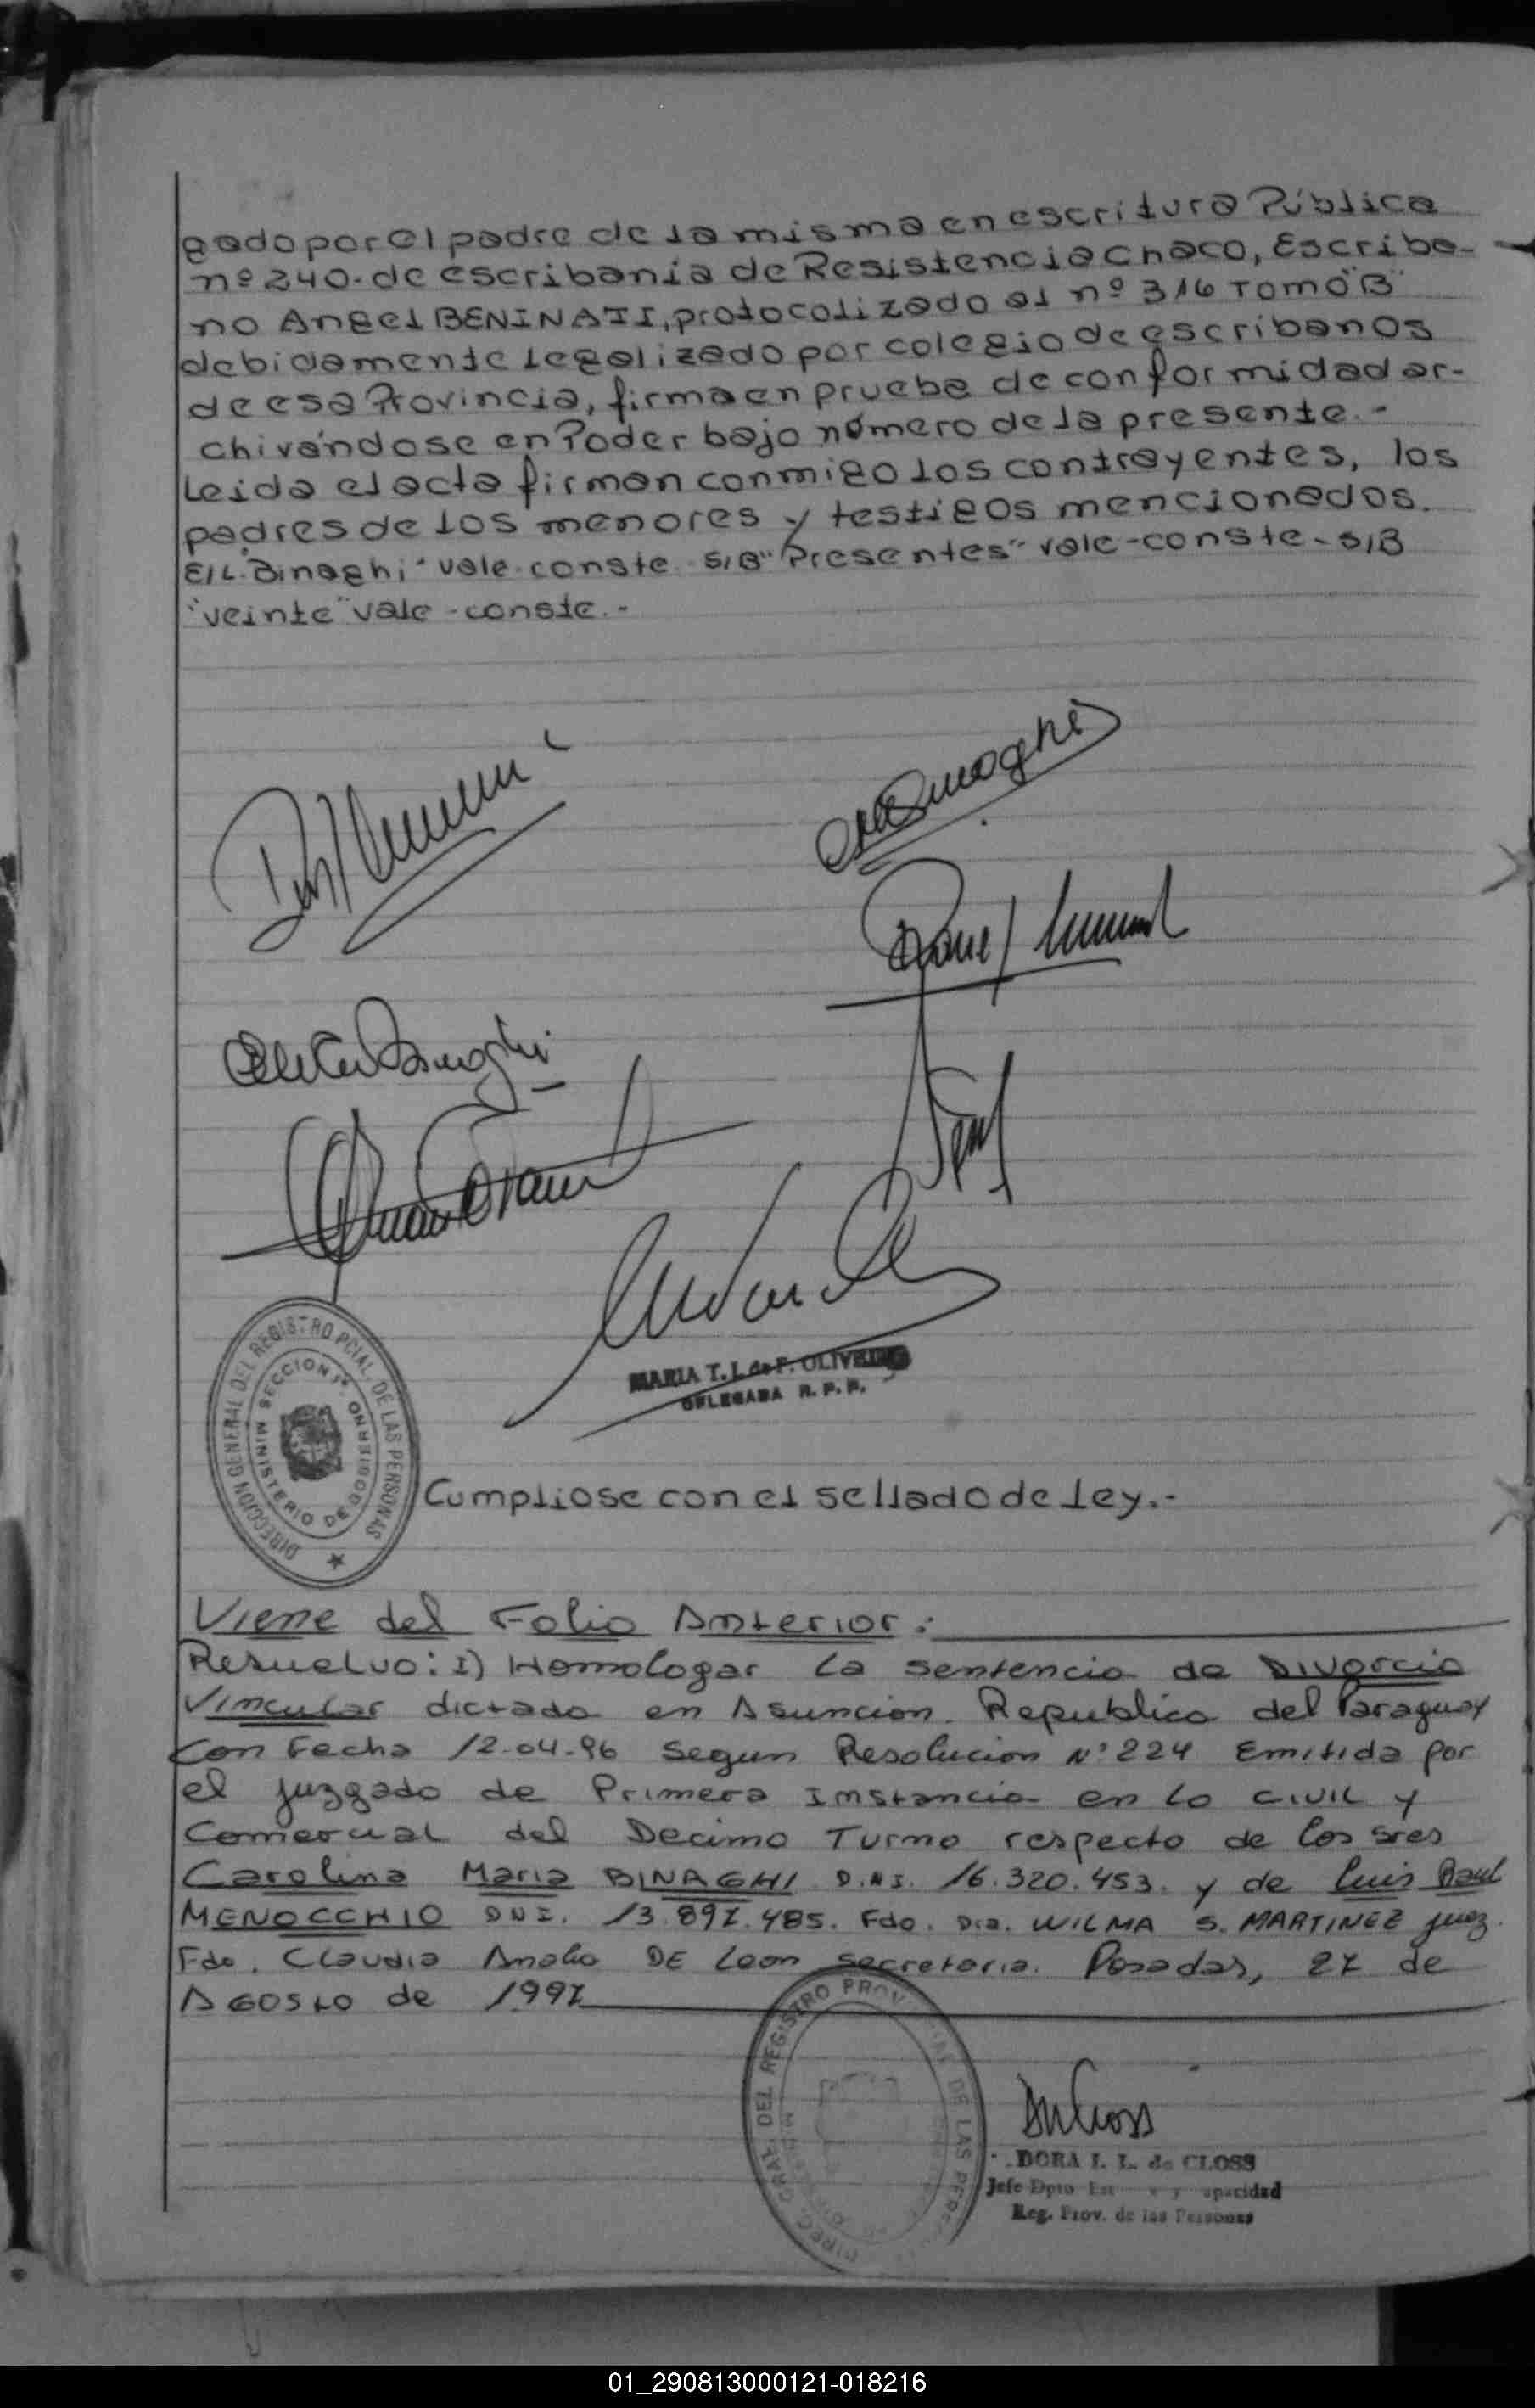 gado por el padre de la misma en escritura Pública
nº 240. de escribanía de Resistencia Chaco, Escriba-
no Angel BENINATI, protocolizado al nº 316 Tomo "B"
debidamente legalizado por colegio de escribanos
de esa Provincia, firma en prueba de conformidad ar-
chivándose en Poder bajo número de la presente.-
Leida el acta firman conmigo los contrayentes, los
padres de los menores y testigos mencionados.
E/L. Binaghi" vale-conste S/B "Presentes" vale-conste- S/B
"veinte" vale-conste.-
MARIA T. I. de F. OLIVEIRA
DELEGADA R. P. P.
DIRECCION GENERAL DEL REGISTRO PCIAL. DE LAS PERSONAS
SECCION 1ª
MINISTERIO DE GOBIERNO
Cumpliose con el sellado de Ley.-
Viene del Folio Anterior:
Resuelvo: I) Homologar la sentencia de Divorcio
Vincular dictada en Asuncion. Republica del Paraguay
Con Fecha 12-04-96 Segun Resolucion Nº 224 Emitida por
el juzgado de Primera Instancia en lo CIVIL y
Comercial del Decimo Turno respecto de los sres
Carolina Maria BINAGHI D.N.I. 16.320.453. y de Luis Raul
MENOCCHIO DNI. 13.897.485. Fdo. Dra. WILMA S. MARTINEZ juez.
Fdo. Claudia Analia DE Leon secretaria. Posadas, 27 de
AGOSTO de 1997
DIREC. GRAL. DEL REGISTRO PROVINCIAL DE LAS PERS
DORA I. L. de CLOSS
Jefe Dpto Est y apacidad
Reg. Prov. de las Personas
01_290813000121-018216